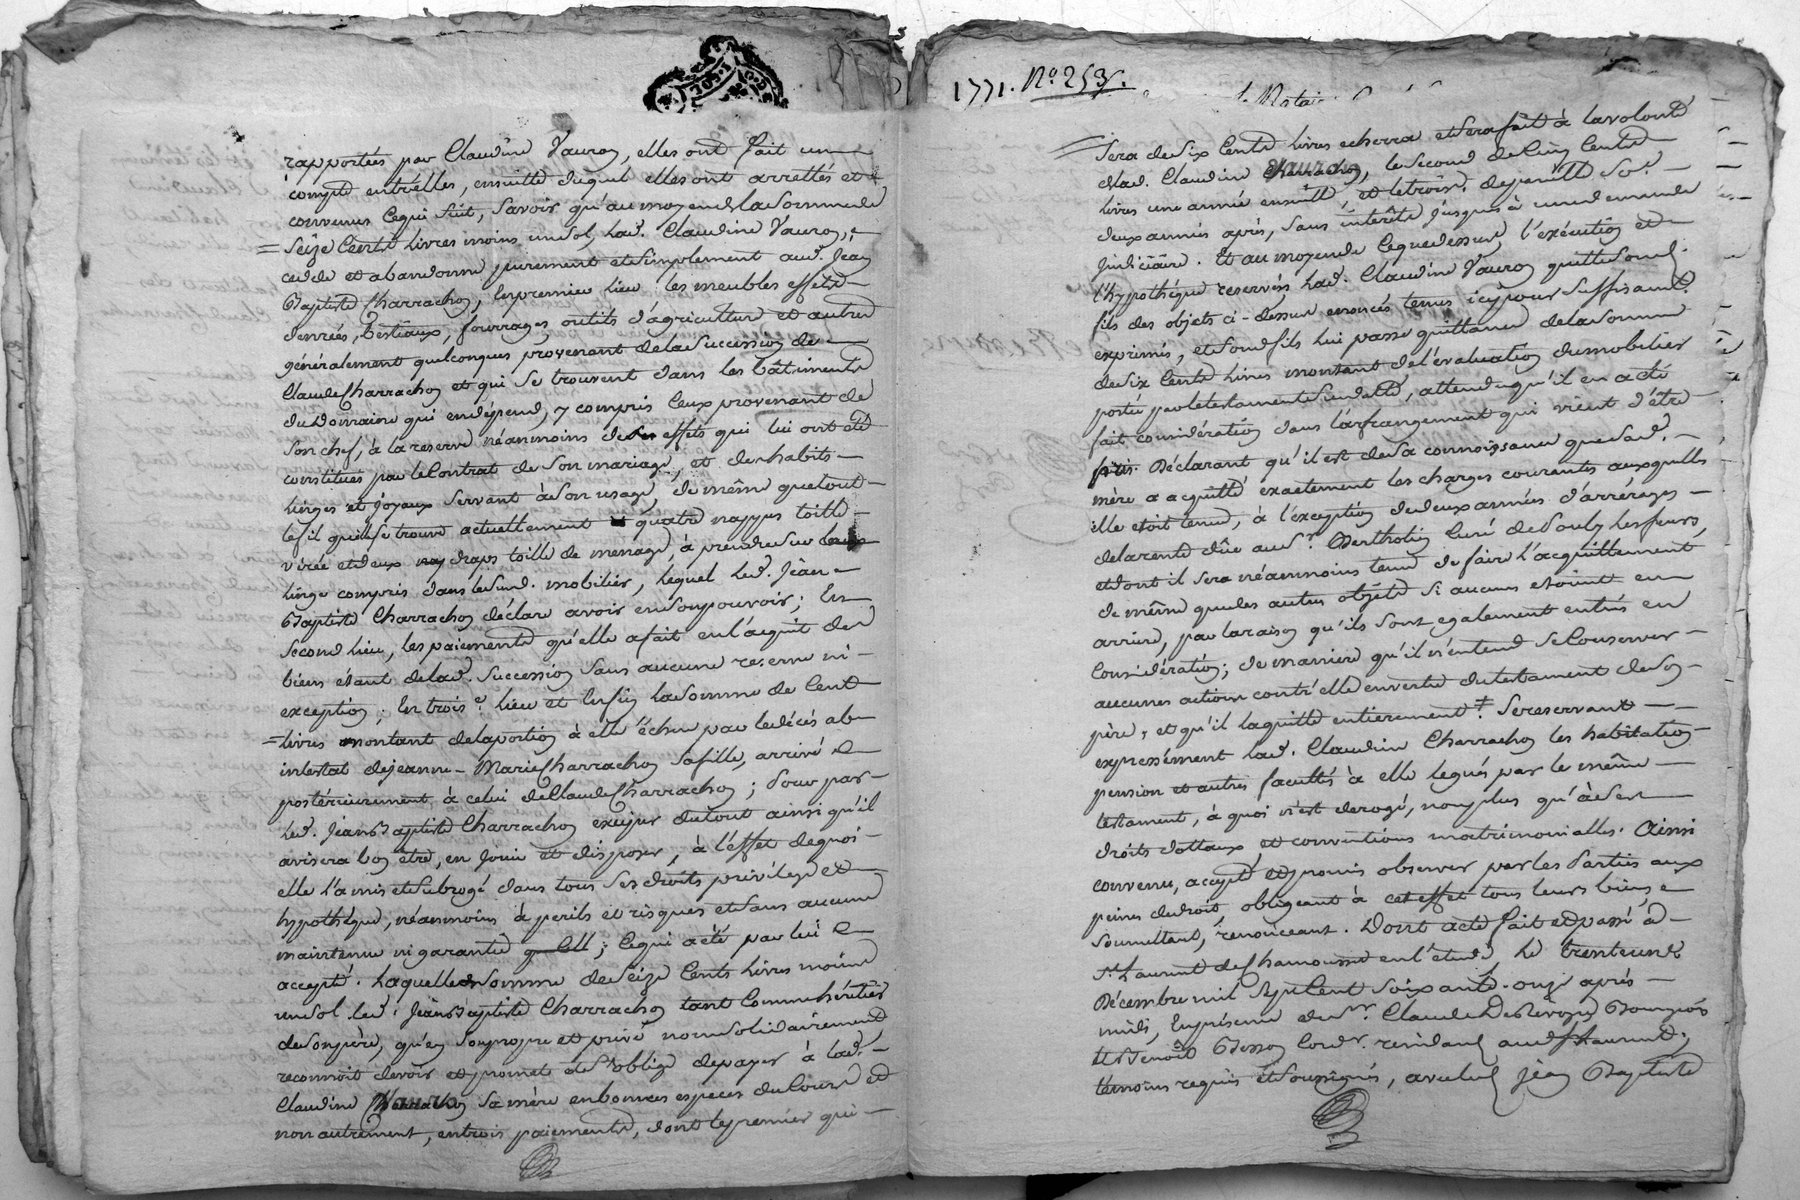 rapportées par Claudine Vauron, elles ont fait un
compte entr'elles, ensuitte duquel elles ont arrettés et
convenus ce qui suit, Savoir qu'au moyen de la Somme de
Seize Cents livres moins un Sol, lad. Claudine Vauron,
cedde et abandonne purement et simplement aud. Jean
Baptiste Charrachon, En premier lieu les meubles effets
denrées, bestiaux, fourrages, outils d'agriculture et autres
généralement quelconques provenant de la Succession de
Claude Charrachon et qui Se trouvent dans les bâtiments
du Domaine qui en dépend, y compris Ceux provenant de
Son chef, à la reserve néanmoins des effets qui lui ont été
constitués par le Contrat de Son mariage, et des habits
linges et joyaux Servant à Son usage, de même que tout
le fil qu'elle Se trouve actuellement quatre nappes toille
et deux draps toille de menage, à prendre sur
linge compris dans le Susd. mobilier, lequel led. Jean
Baptiste Charrachon déclare avoir en Son pouvoir; En
Second lieu, les paiements qu'elle a fait en l'acquit des
biens étant de lad. Succession Sans aucune reserve ni
exception; En trois.e lieu et Enfin la Somme de Cent
livres montant de la portion à elle échue par le décés ab
intestat de jeanne-Marie Charrachon Sa fille, arrivé
postérieurement à celui de Claude Charrachon; Pour par
led. Jean Baptiste Charrachon exiger du tout ainsi qu'il
avisera bon être, en Jouir et disposer, à l'effet de quoi
elle l'a mis et Subrogé dans tous Ses droits privilege et
hypothéque, néanmoins à perils et risques et Sans aucune
maintenue ni garantie ; Ce qui a été par lui
accepté. Laquelle Somme de Seize Cents livres moins
un Sol led. Jean Baptiste Charrachon tant Comme héritier
de Son père, qu'en Son propre et privé nom Solidairement
reconnoit devoir et promet et S'oblige de payer à lad.
Claudine Vauron Sa mère en bonnes especes du Cours et
non autrement, en trois paiements, dont le premier qui
1771. N.o 253.
Sera de Six Cents livres echerra et Sera fait à la volonté
de lad. Claudine Vauron, le Second de Cinq Cents
livres une année ensuitte, et le trois.e de pareille So.e
deux années après, Sans intérêts jusques à une demande
Judiciaire. Et au moyen de Ce que dessus, l'exécution et
l'hypothéque reservés, lad. Claudine Vauron quitte Sond.
fils des objets ci-dessus enoncés tenus icy pour Suffisamt
exprimés, et Sond. fils lui passe quittance de la Somme
de Six Cents livres montant de l'évaluation du mobilier
portée par le testament Susdatté, attendu qu'il en a été
fait considération dans l'arrangement qui vient d'être
pris. Déclarant qu'il est de Sa connoissance que Sad.
mère a acquitté exactement les charges courantes auxquelles
elle etoit tenue, à l'exception de deux années d'arrérages
de la rente dûe au S.r Bertholin Curé de Souzy,
et dont il Sera néanmoins tenu de faire l'acquittement
de même que les autres objets Si aucuns etoient en
arriere, par la raison qu'ils Sont egalement entrés en
Considération; de maniere qu'il n'entend Se Conserver
aucunes actions contr'elle en vertu du testament de Son
père, et qu'il la quitte entierement. Se reservant
expressément lad. Claudine Charrachon les habitation
pension et autres facultés à elle legués par le même
testament, à quoi n'est derogé, non plus qu'à Ses
droits dotaux et conventions matrimonialles. Ainsi
convenu, accepté et promis observer par les Parties aux
peines de droit, obligeant à cet effet tous leurs biens,
Soumettant, renonceant. Dont acte fait et passé à
S.t Laurent de Chamousset en l'étude, le trente un
Décembre mil Sept Cent Soixante-onze après
midi, En présence de S.r Claude Bourgeois
et Benoît Besson Cord.r résidants aud. St Laurent,
temoins requis et Soussignés, avec led. Jean Baptiste